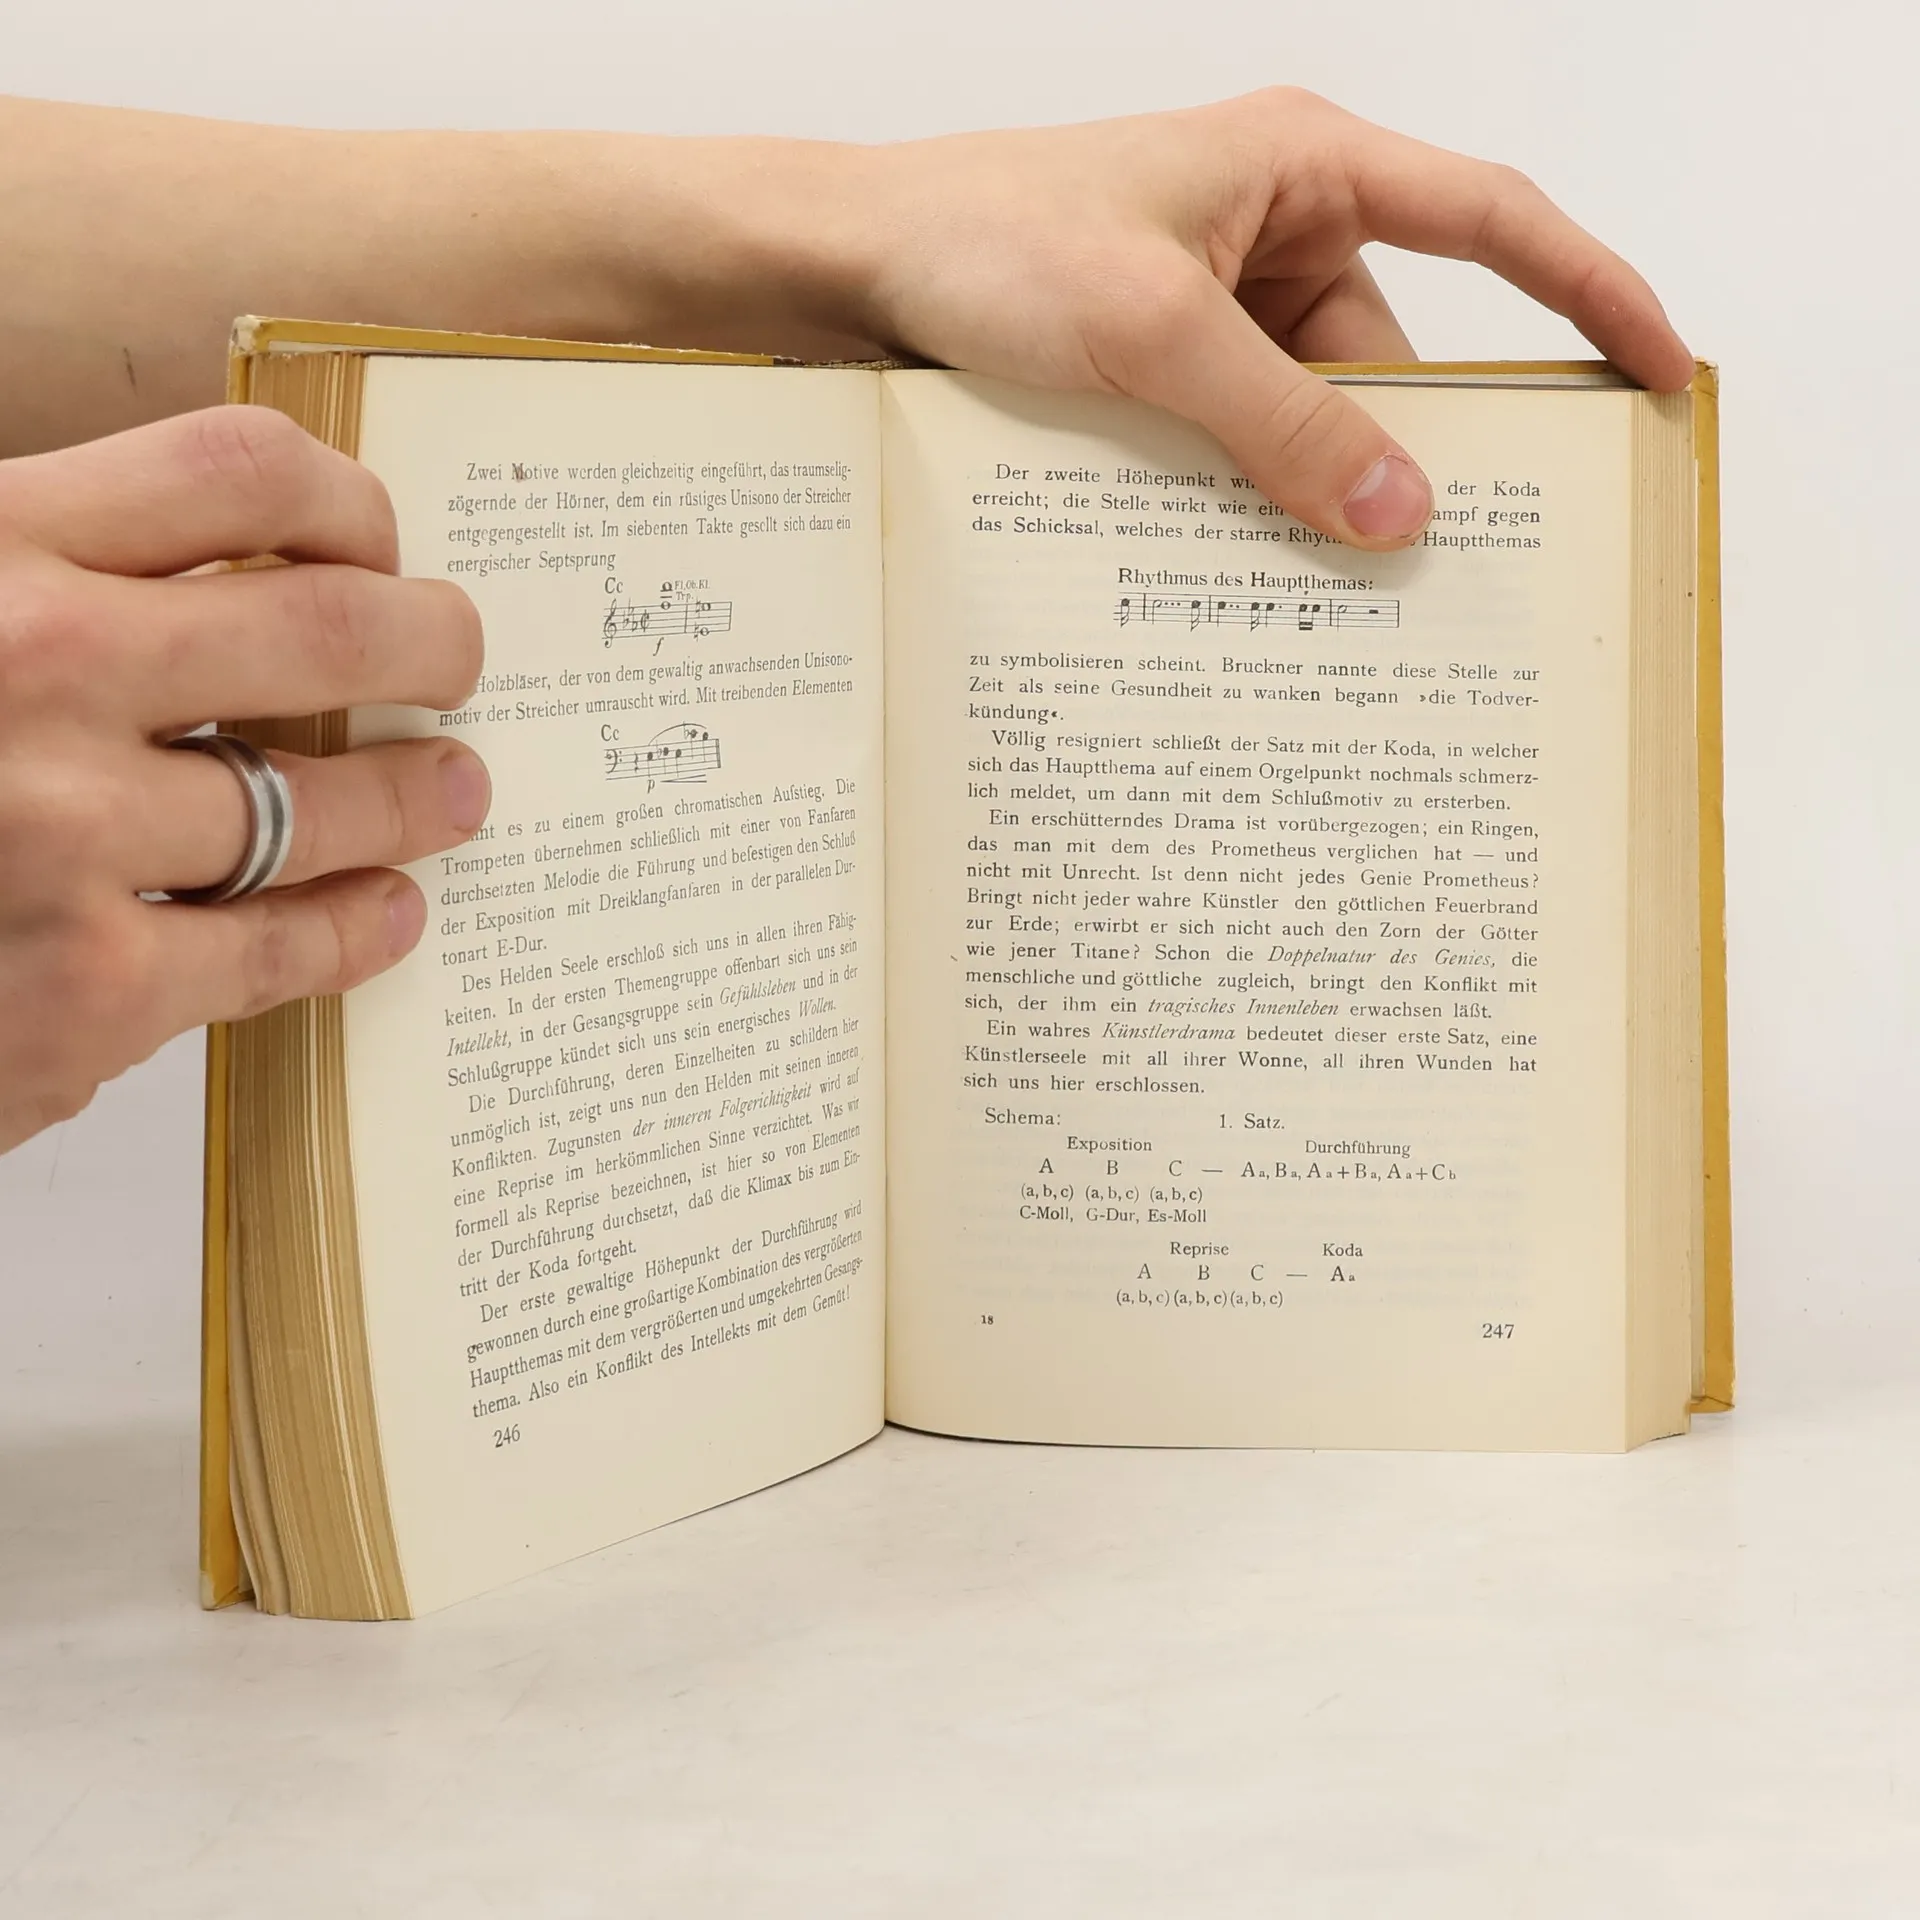 Zwei Motive werden gleichzeitig eingeführt, das traumselig-
zögernde der Hörner, dem ein rüstiges Unisono der Streicher
entgegengestellt ist. Im siebenten Takte gesellt sich dazu ein
energischer Septsprung
Cc
Fl. Ob. Kl.
Trp.
f
Holzbläser, der von dem gewaltig anwachsenden Unisono-
motiv der Streicher umrauscht wird. Mit treibenden Elementen
Cc
p
es zu einem großen chromatischen Aufstieg. Die
Trompeten übernehmen schließlich mit einer von Fanfaren
durchsetzten Melodie die Führung und befestigen den Schluß
der Exposition mit Dreiklangfanfaren in der parallelen Dur-
tonart E-Dur.
Des Helden Seele erschloß sich uns in allen ihren Fähig-
keiten. In der ersten Themengruppe offenbart sich uns sein
Intellekt, in der Gesangsgruppe sein Gefühlsleben und in der
Schlußgruppe kündet sich uns sein energisches Wollen.
Die Durchführung, deren Einzelheiten zu schildern hier
unmöglich ist, zeigt uns nun den Helden mit seinen inneren
Konflikten. Zugunsten der inneren Folgerichtigkeit wird auf
eine Reprise im herkömmlichen Sinne verzichtet. Was wir
formell als Reprise bezeichnen, ist hier so von Elementen
der Durchführung durchsetzt, daß die Klimax bis zum Ein-
tritt der Koda fortgeht.
Der erste gewaltige Höhepunkt der Durchführung wird
gewonnen durch eine großartige Kombination des vergrößerten
Hauptthemas mit dem vergrößerten und umgekehrten Gesangs-
thema. Also ein Konflikt des Intellekts mit dem Gemüt!
246
Der zweite Höhepunkt der Koda
erreicht; die Stelle wirkt wie ein gegen
das Schicksal, welches der starre Hauptthemas
Rhythmus des Hauptthemas:
zu symbolisieren scheint. Bruckner nannte diese Stelle zur
Zeit als seine Gesundheit zu wanken begann »die Todver-
kündung«.
Völlig resigniert schließt der Satz mit der Koda, in welcher
sich das Hauptthema auf einem Orgelpunkt nochmals schmerz-
lich meldet, um dann mit dem Schlußmotiv zu ersterben.
Ein erschütterndes Drama ist vorübergezogen; ein Ringen,
das man mit dem des Prometheus verglichen hat — und
nicht mit Unrecht. Ist denn nicht jedes Genie Prometheus?
Bringt nicht jeder wahre Künstler den göttlichen Feuerbrand
zur Erde; erwirbt er sich nicht auch den Zorn der Götter
wie jener Titane? Schon die Doppelnatur des Genies, die
menschliche und göttliche zugleich, bringt den Konflikt mit
sich, der ihm ein tragisches Innenleben erwachsen läßt.
Ein wahres Künstlerdrama bedeutet dieser erste Satz, eine
Künstlerseele mit all ihrer Wonne, all ihren Wunden hat
sich uns hier erschlossen.
Schema: 1. Satz.
Exposition Durchführung
A B C — Aa, Ba, Aa+Ba, Aa+Cb
(a, b, c) (a, b, c) (a, b, c)
C-Moll, G-Dur, Es-Moll
Reprise Koda
A B C — Aa
(a, b, c) (a, b, c) (a, b, c)
18
247